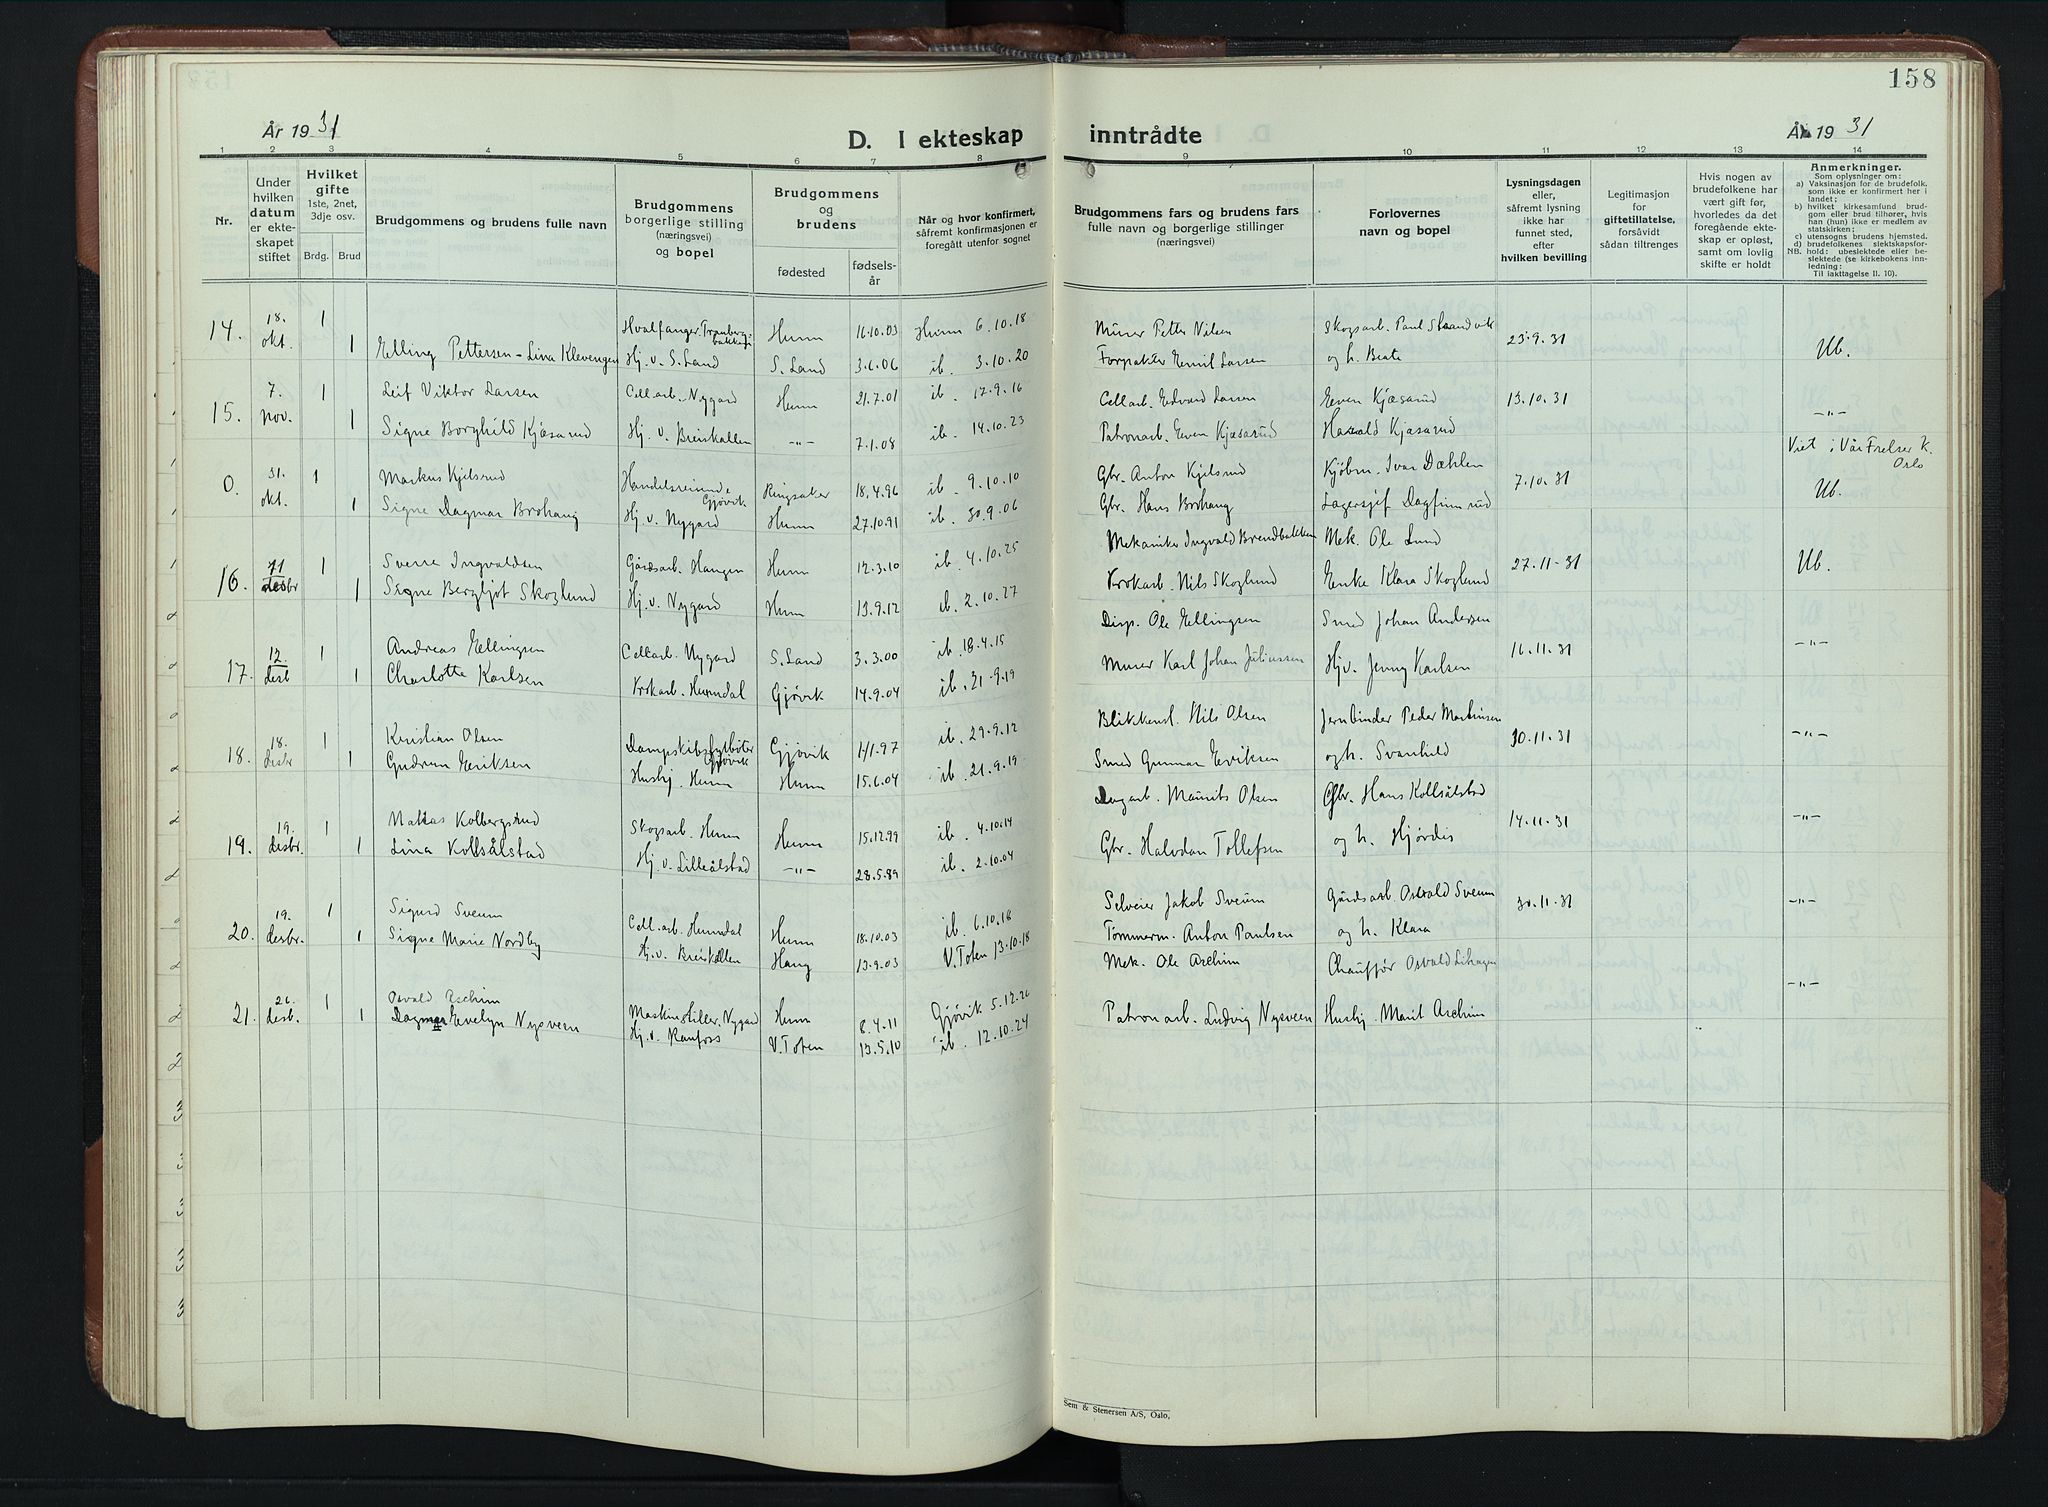 158
År 1931
D. I ekteskap inntrådte
År 1931
1 2 3 4 5 6 7 8 9 10 11 12 13 14
Nr.
Under hvilken datum er ekteskapet stiftet
Hvilket gifte 1ste, 2net, 3dje osv.
Brdg. Brud
Brudgommens og brudens fulle navn
Brudgommens borgerlige stilling (næringsvei) og bopel
Brudgommens og brudens
fødested
fødselsår
Når og hvor konfirmert, såfremt konfirmasjonen er foregått utenfor sognet
Brudgommens fars og brudens fars fulle navn og borgerlige stillinger (næringsvei)
Forlovernes navn og bopel
Lysningsdagen eller, såfremt lysning ikke har funnet sted, efter hvilken bevilling
Legitimasjon for giftetillatelse, forsåvidt sådan tiltrenges
Hvis nogen av brudefolkene har vært gift før, hvorledes da det foregående ekteskap er opløst, samt om lovlig skifte er holdt
Anmerkninger.
Som oplysninger om:
a) Vaksinasjon for de brudefolk. som ikke er konfirmert her i landet;
b) hvilket kirkesamfund brudgom eller brud tilhører, hvis han (hun) ikke er medlem av statskirken;
c) utensogns brudens hjemsted.
d) brudefolkenes slektskapsforhold: ubeslektede eller beslektede (se kirkebokens innledning:
NB. Til iakttagelse II. 10).
14. 18. okt. 1 1 Elling Pettersen - Lina Klevengen
Hvalfanger Tranberg- bakken Hunn 16.10.03 Hunn 6.10.18 Murer Petter Nilsen Skogsarb. Paul Strandvik 23.9.31 Ub.
Hj. v. S. Land S. Land 3.6.06 ib. 3.10.20 Forpakter Emil Larsen og h. Beate
15. 7. nov. 1 Leif Viktor Larsen Cell.arb. Nygard Hunn 21.7.01 ib. 17.9.16 Cellarb. Edvard Larsen Even Kjæsrud 13.10.31 -"-
1 Signe Borghild Kjæsrud Hj. v. Breiskallen -"- 7.1.08 ib. 14.10.23 Patronarb. Even Kjæsrud Harald Kjæsrud
Viet i Vår Frelser K. Oslo
0. 31. okt. 1 Markus Kjelsrud Handelsreisende Gjøvik Ringsaker 18.4.96 ib. 9.10.10 Gbr. Anton Kjelsrud Kjøbm. Ivar Dæhlen 7.10.31 Ub.
1 Signe Dagmar Brohaug Hj. v. Nygard Hunn 27.10.91 ib. 30.9.06 Gbr. Hans Brohaug Lagersjef Dagfinn rud
16. desbr 1 Sverre Ingvaldsen Gårdsarb. Haugen Hunn 12.3.10 ib. 4.10.25 Mekaniker Ingvald Brendbakken Mek. Ole Lund 27.11-31 Ub.
1 Signe Bergljot Skoglund Hj. v. Nygard Hunn 13.9.12 ib. 2.10.27 Krokarb. Nils Skoglund Enke Klara Skoglund
17. 12. desb 1 Andreas Ellingsen Cellarb. Nygard S. Land 3.3.00 ib. 18.4.15 Disp. Ole Ellingsen Smed Johan Andersen 16.11.31 -"-
1 Charlotte Karlsen Krokarb. Hunndal Gjøvik 14.9.04 ib. 21.9.19 Murer Karl Johan Juliussen Hjv. Jenny Karlsen
18. 18. desbr 1 Kristian Olsen Dampskibsfyrbøter Gjøvik Gjøvik 1/1.97 ib. 29.9.12 Blikkensl. Nils Olsen Jernbinder Peder Martinsen 30.11.31 -"-
1 Gudrun Eriksen Hushj. Hunn Hunn 15.6.04 ib. 21.9.19 Smed Gunnar Eriksen og h. Svanhild
19. 19. desbr. 1 Mattias Kolbergsrud Skogsarb. Hunn Hunn 15.12.99 ib. 4.10.14 Dagarb. Maurits Olsen Gbr. Hans Kollsålstad 14.11.31 -"-
1 Lina Kollsålstad Hj. v. Lilleålstad -"- 28.5.89 ib. 2.10.04 Gbr. Halvdan Tollefsen og h. Hjørdis
20. 19. desbr. 1 Sigurd Sveum Cell.arb. Hunndal Hunn 18.10.03 ib. 6.10.18 Selveier Jakob Sveum Gårdsarb. Osvald Sveum 30.11.31 -"-
1 Signe Marie Nordby Hj. v. Breiskallen Haug 13.9.03 V. Toten 13.10.18 Tømmerm. Anton Paulsen og h. Klara
21. 26. desb. 1 Osvald Aschim Maskinstiller. Nygard Hunn 8.4.11 Gjøvik 5.12.26 Mek. Ole Aschim Chauffør Osvald Lihagen -"-
1 Dagmar Evelyn Nysveen Hj. v. Raufoss V. Toten 13.5.10 ib. 12.10.24 Patronarb. Ludvig Nysveen Hushj. Marit Aschim
Sem & Stenersen A/S, Oslo.